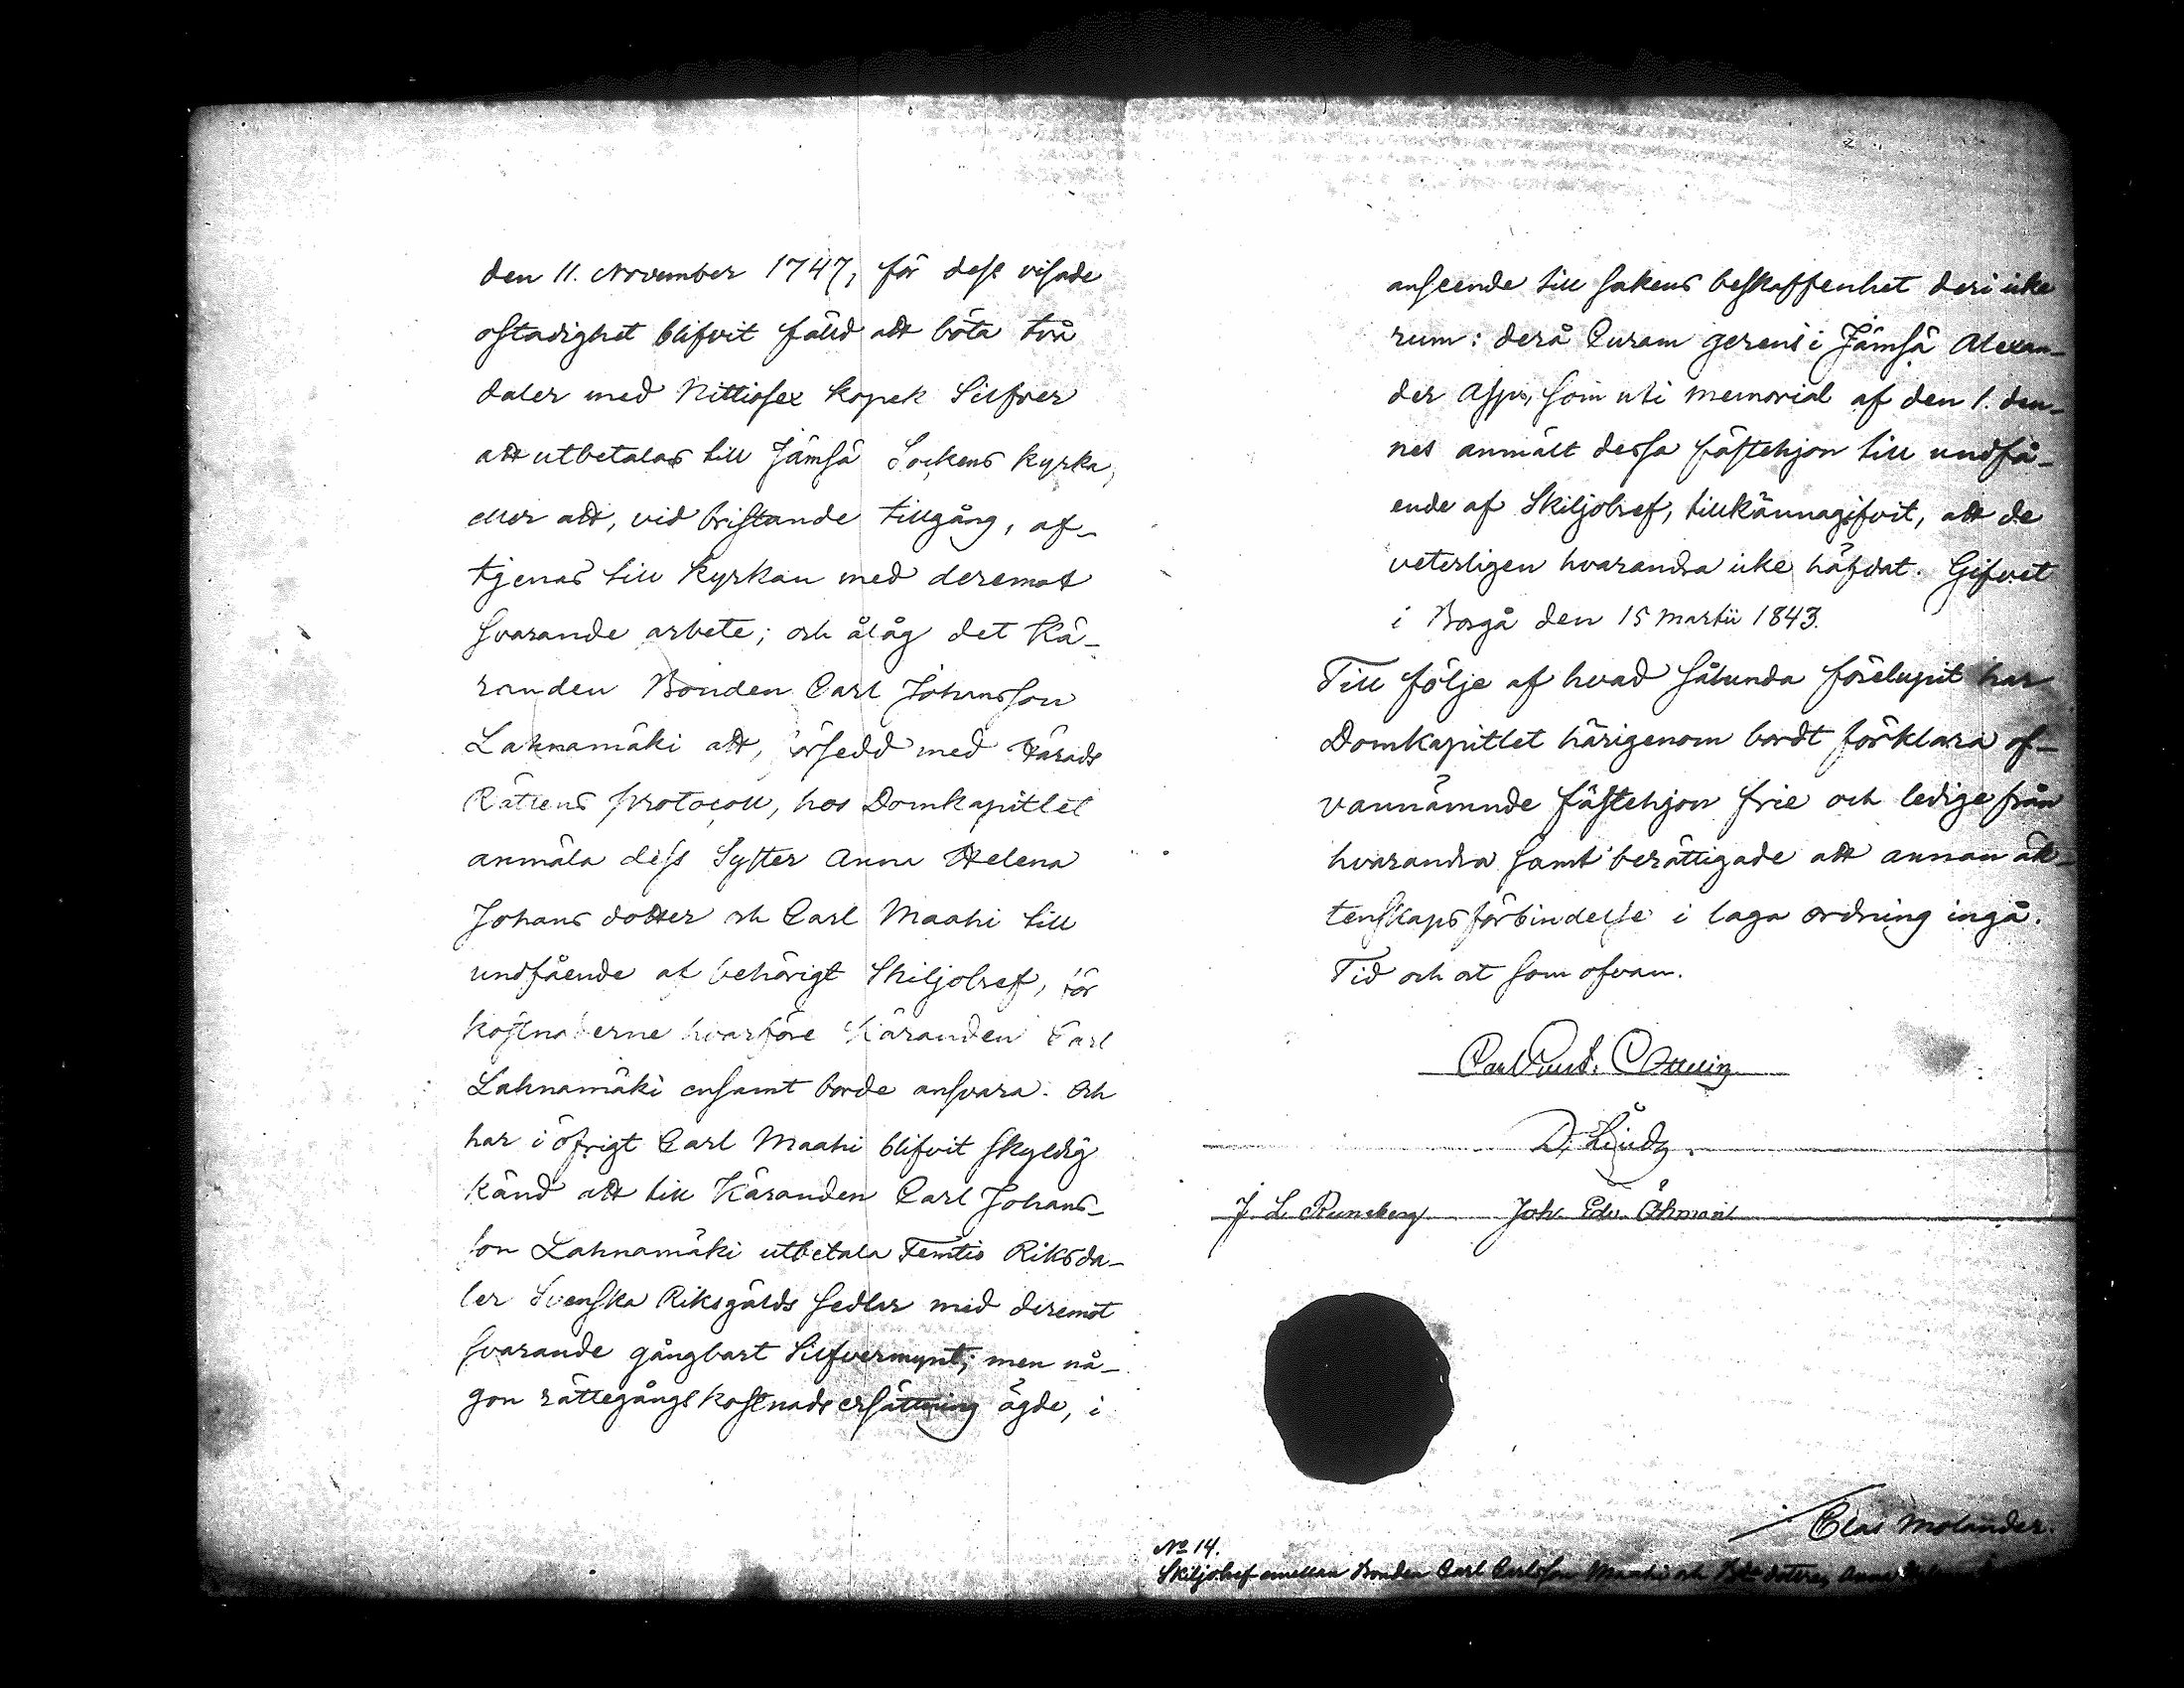 den 11. November 1747, för dess visade
ostadighet blifvit fälld att böta två
daler med Nittiosex kopek Silfver
att utbetalas till Jämsä Sockens kyrka,
eller att, vid bristande tillgång, af-
tjenas till kyrkan med deremot
svarande arbete; och ålåg det Kä-
randen Bonden Carl Johansson
Lahnamäki att, försedd med Härads
Rättens protocoll, hos Domkapitlet
anmäla dess Syster Anna Helena
Johans dotter och Carl Maahi till
undfående af behörigt Skiljobref, för
kostnaderne hvarföre Käranden Carl
Lahnamäki ensamt borde ansvara. Och
har i öfrigt Carl Maahi blifvit skyldig
känd att till Käranden Carl Johans-
son Lahnamäki utbetala Femtio Riksda-
ler Svenska Riksgälds Sedlar med deremot
svarande gångbart Silfvermynt; men nå-
gon rättegångs kostnads ersättning ägde, i
anseende till sakens beskaffenhet deri icke
rum: derå Curam gerens i Jämsä Alexan-
der som uti memorial af den 1. den-
nes anmält dessa fästehjon till undfå-
ende af Skiljobref, tillkännagifvit, att de
veterligen hvarandra icke häfdat. Gifvet
i Borgå den 15 Martii 1843.
Till följe af hvad sålunda förelupit har
Domkapitlet härigenom bordt förklara of-
vannämnde fästehjon frie och ledige från
hvarandra samt berättigade att annan äk-
tenskaps förbindelse i laga ordning ingå.
Tid och ort som ofvan.
Ottelin
J. L. Runeberg Joh. Edv. Öhman
Clas Molander.
No 14.
Skiljobref emellan Bonden Carl Carlsson Maahi och Anna